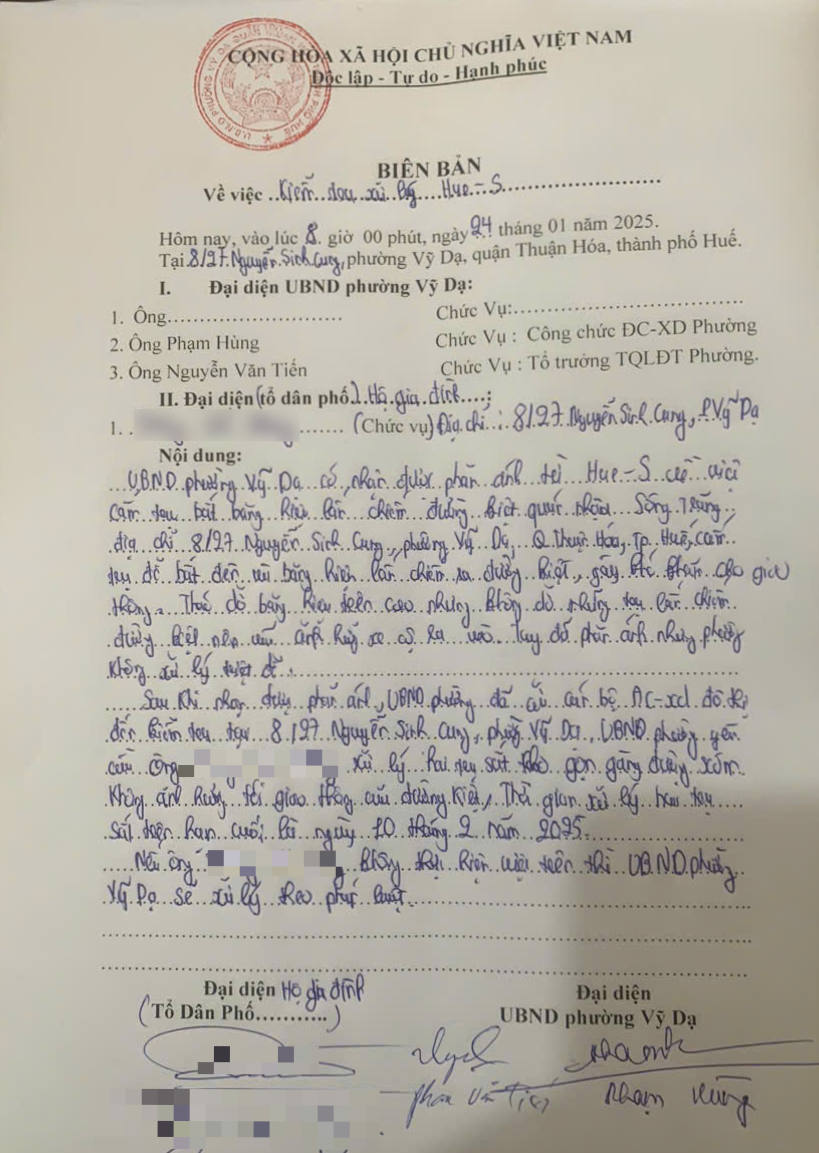 CỘNG HÒA XÃ HỘI CHỦ NGHĨA VIỆT NAM
Độc lập - Tự do - Hạnh phúc
BIÊN BẢN
Về việc ..Kiểm tra xử lý Hue-S..........
Hôm nay, vào lúc 8. giờ 00 phút, ngày 24 tháng 01 năm 2025.
Tại 8/27.Nguyễn Sinh Cung, phường Vỹ Dạ, quận Thuận Hóa, thành phố Huế.
I. Đại diện UBND phường Vỹ Dạ:
1. Ông.......................... Chức Vụ:..................................
2. Ông Phạm Hùng Chức Vụ : Công chức ĐC-XD Phường
3. Ông Nguyễn Văn Tiến Chức Vụ : Tổ trưởng TQLĐT Phường.
II. Đại diện (tổ dân phố) Hộ gia đình....;
1. ........ (Chức vụ) Địa chỉ : 8/27 Nguyễn Sinh Cung, P Vỹ Dạ
Nội dung:
UBND phường Vỹ Dạ có nhận được phản ánh từ Hue-S về việc
bảng hiệu lấn chiếm đường kiệt quán nhậu Sóng Trăng
địa chỉ 8/27 Nguyễn Sinh Cung, phường Vỹ Dạ, Q Thuận Hóa, Tp. Huế,
trụ để bắt đèn và bảng hiệu lấn chiếm ra đường kiệt, gây khó khăn cho giao
thông. bảng hiệu trên cao nhưng không dỡ những trụ lấn chiếm
đường kiệt nên vẫn ảnh hưởng xe cộ ra vào phản ánh nhưng phường
không xử lý triệt để.
Sau khi nhận được phản ánh, UBND phường đã cử cán bộ ĐC-XD đô thị
đến kiểm tra tại 8/27 Nguyễn Sinh Cung, phường Vỹ Dạ, UBND phường yêu
cầu ông xử lý hai trụ sắt gọn gàng đường xóm
không ảnh hưởng tới giao thông của đường kiệt, Thời gian xử lý hai trụ
sắt trên hạn cuối là ngày 10 tháng 2 năm 2025.
Nếu ông không thực hiện việc trên thì UBND phường
Vỹ Dạ sẽ xử lý theo pháp luật.
Đại diện Hộ gia đình Đại diện
(Tổ Dân Phố...........) UBND phường Vỹ Dạ
Phạm Hùng